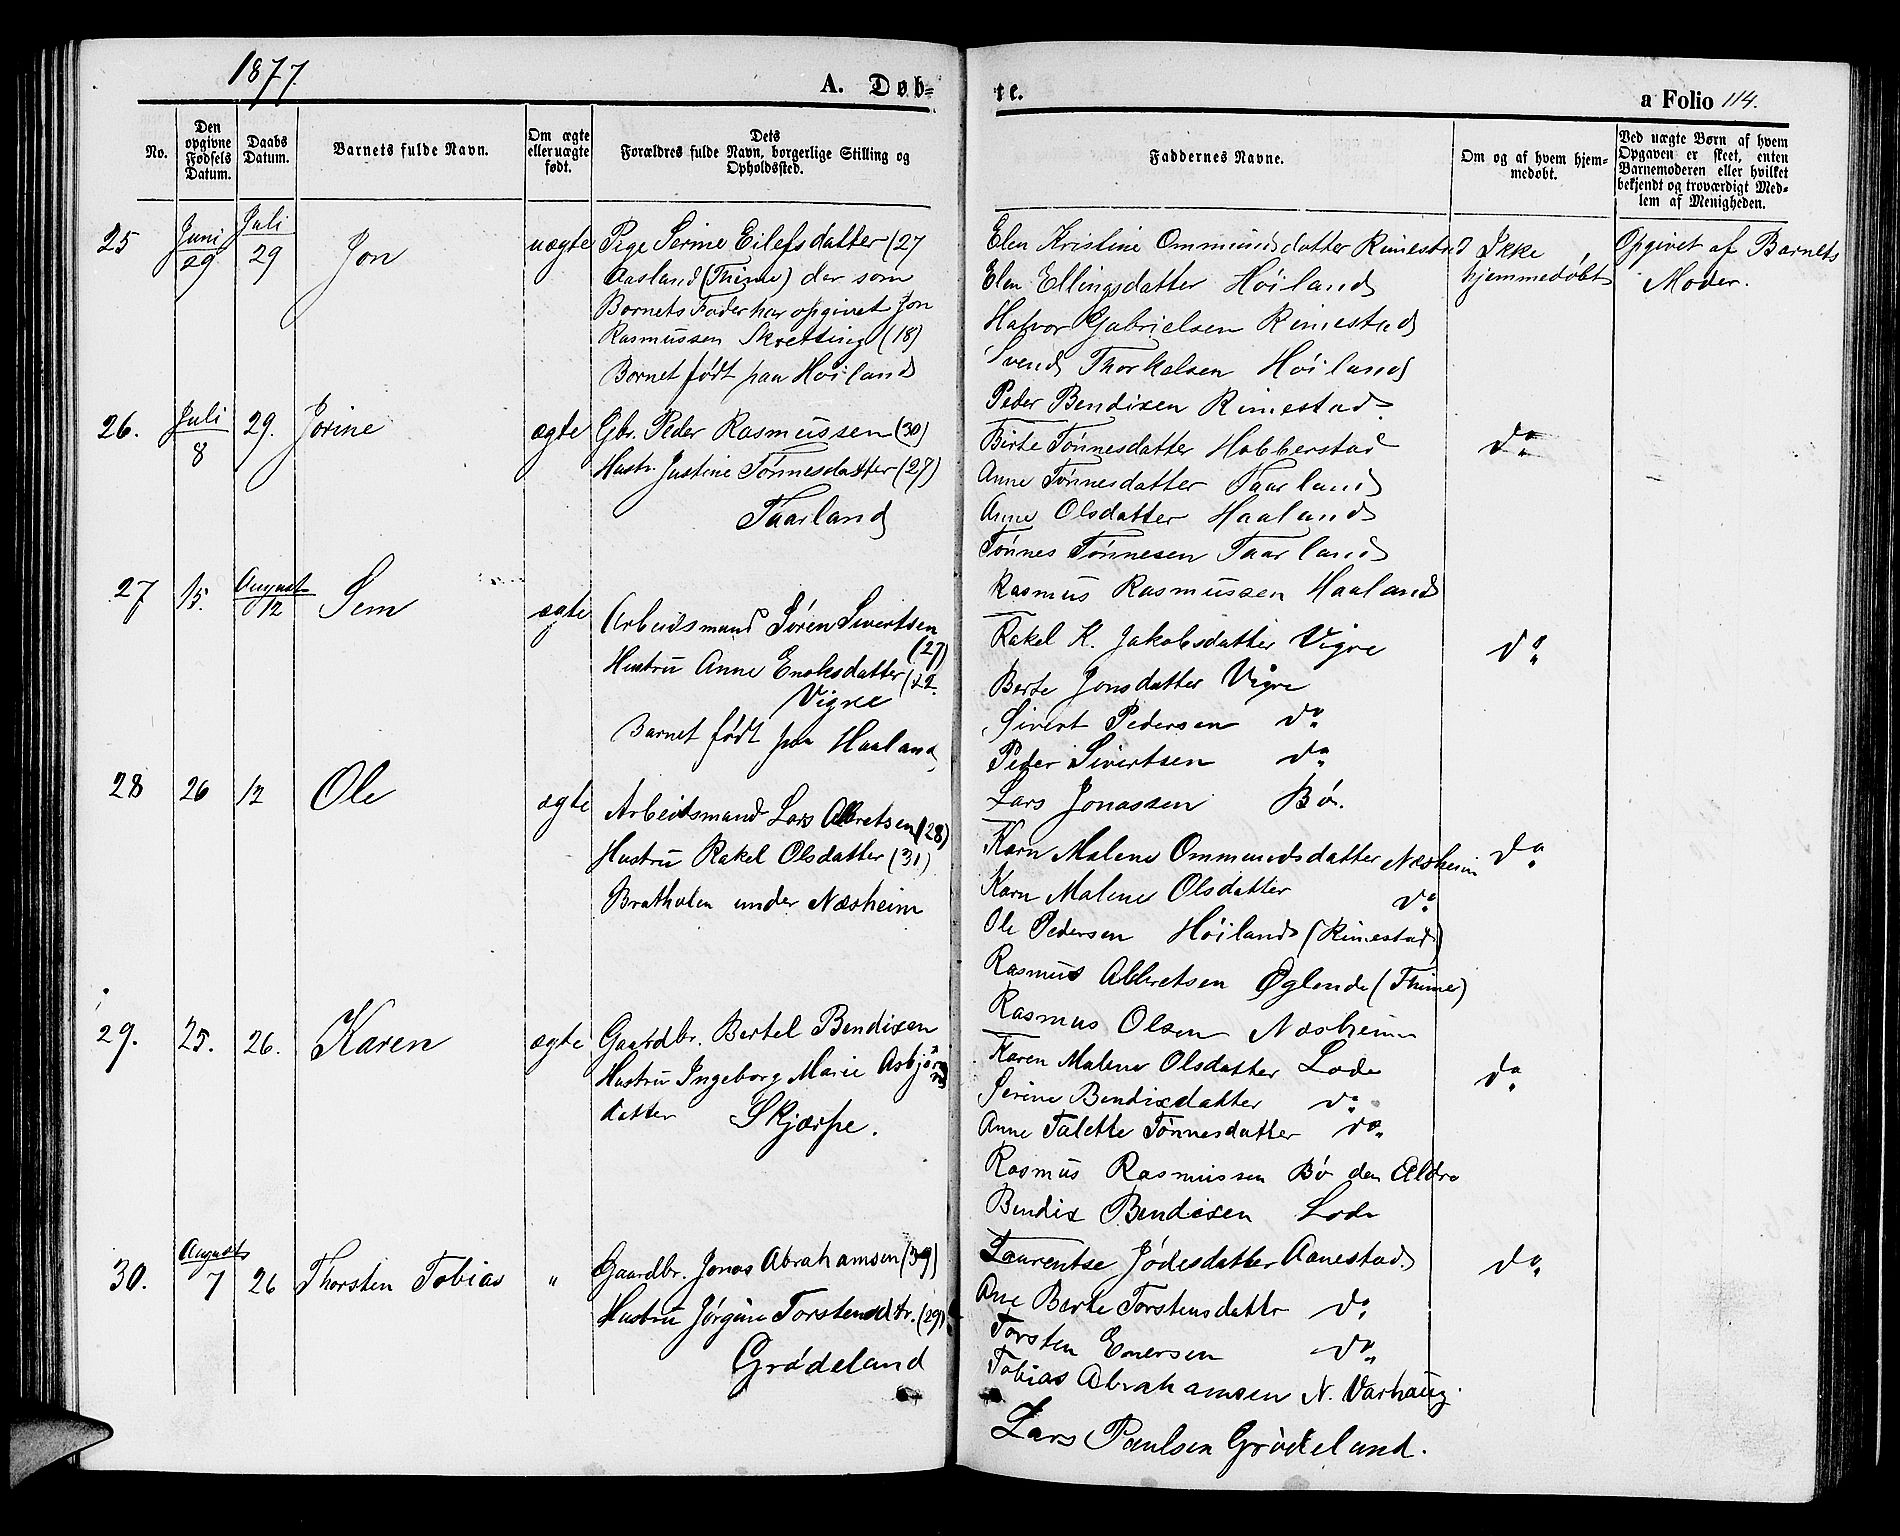 1877.
A. Døb=
te.
a Folio 114.
No.
Den opgivne Fødsels Datum.
Daabs Datum.
Barnets fulde Navn.
Om ægte eller uægte født.
Dets Forældres fulde Navn, borgerlige Stilling og Opholdssted.
Faddernes Navne.
Om og af hvem hjem-
medøbt.
Ved uægte Børn af hvem
Opgaven er skeet, enten
Barnemoderen eller hvilket
bekjendt og troværdigt Med-
lem af Menigheden.
25 Juni 29 Juli 29 Jon uægte Pige Serine Eilefsdatter (27
Aasland (Thime) der som
Barnets Fader har opgivet Jon
Rasmussen Skretting (18)
Barnet født paa Høiland
Elen Kristine Ommundsdatter Rimestad
Elen Ellingsdatter Høiland
Halvor Gabrielsen Rimestad
Svend Thorkelsen Høiland
Peder Bendixen Rimestad
Ikke
hjemmedøbt
Opgivet af Barnets
Moder.
26. Juli 8 29. Jorine ægte Gbr. Peder Rasmussen (30)
Hustr. Justine Tønnesdatter (27)
Taarland
Birte Tønnesdatter Hobberstad do
Anne Tønnesdatter Taarland
Anne Olsdatter Haaland
Tønnes Tønnesen Taarland
Rasmus Rasmussen Haaland
27 15. August 12 Sem ægte Arbeidsmand Søren Sivertsen
(27)
Hustru Anne Enoksdatter (22.
Vigre
Barnet født paa Haaland
Rakel K. Jakobsdatter Vigre do
Berte Jonsdatter Vigre
Sivert Pedersen do
Peder Sivertsen do
Lars Jonassen Bø.
28 26 12 Ole ægte Arbeidsmand Lars Albretsen (28)
Hustru Rakel Olsdatter (31)
Bratholen under Næsheim
Karn Malene Ommundsdatter Næsheim do
Karn Malene Olsdatter do
Ole Pedersen Høiland (Rimestad)
Rasmus Albretsen Øglende (Thime)
Rasmus Olsen Næsheim
29. 25. 26. Karen ægte Gaardbr. Bertel Bendixen
Hustru Ingeborg Marie Asbjørns
datter Skjærpe.
Karen Malene Olsdatter Lode do
Serine Bendixdatter do
Anne Talette Tønnesdatter do
Rasmus Rasmussen Bø den Ældre
Bendix Bendixen Lode
30. August 7 26 Thorsten Tobias " Gaardbr. Jonas Abrahamsen (39)
Hustru Jørgine Torstensdtr. (29)
Grødeland
Laurentse Jødesdatter Aanestad. do
Ane Berte Torstensdattr do
Torsten Enersen do
Tobias Abrahamsen N. Varhaug.
Lars Paulsen Grødeland.